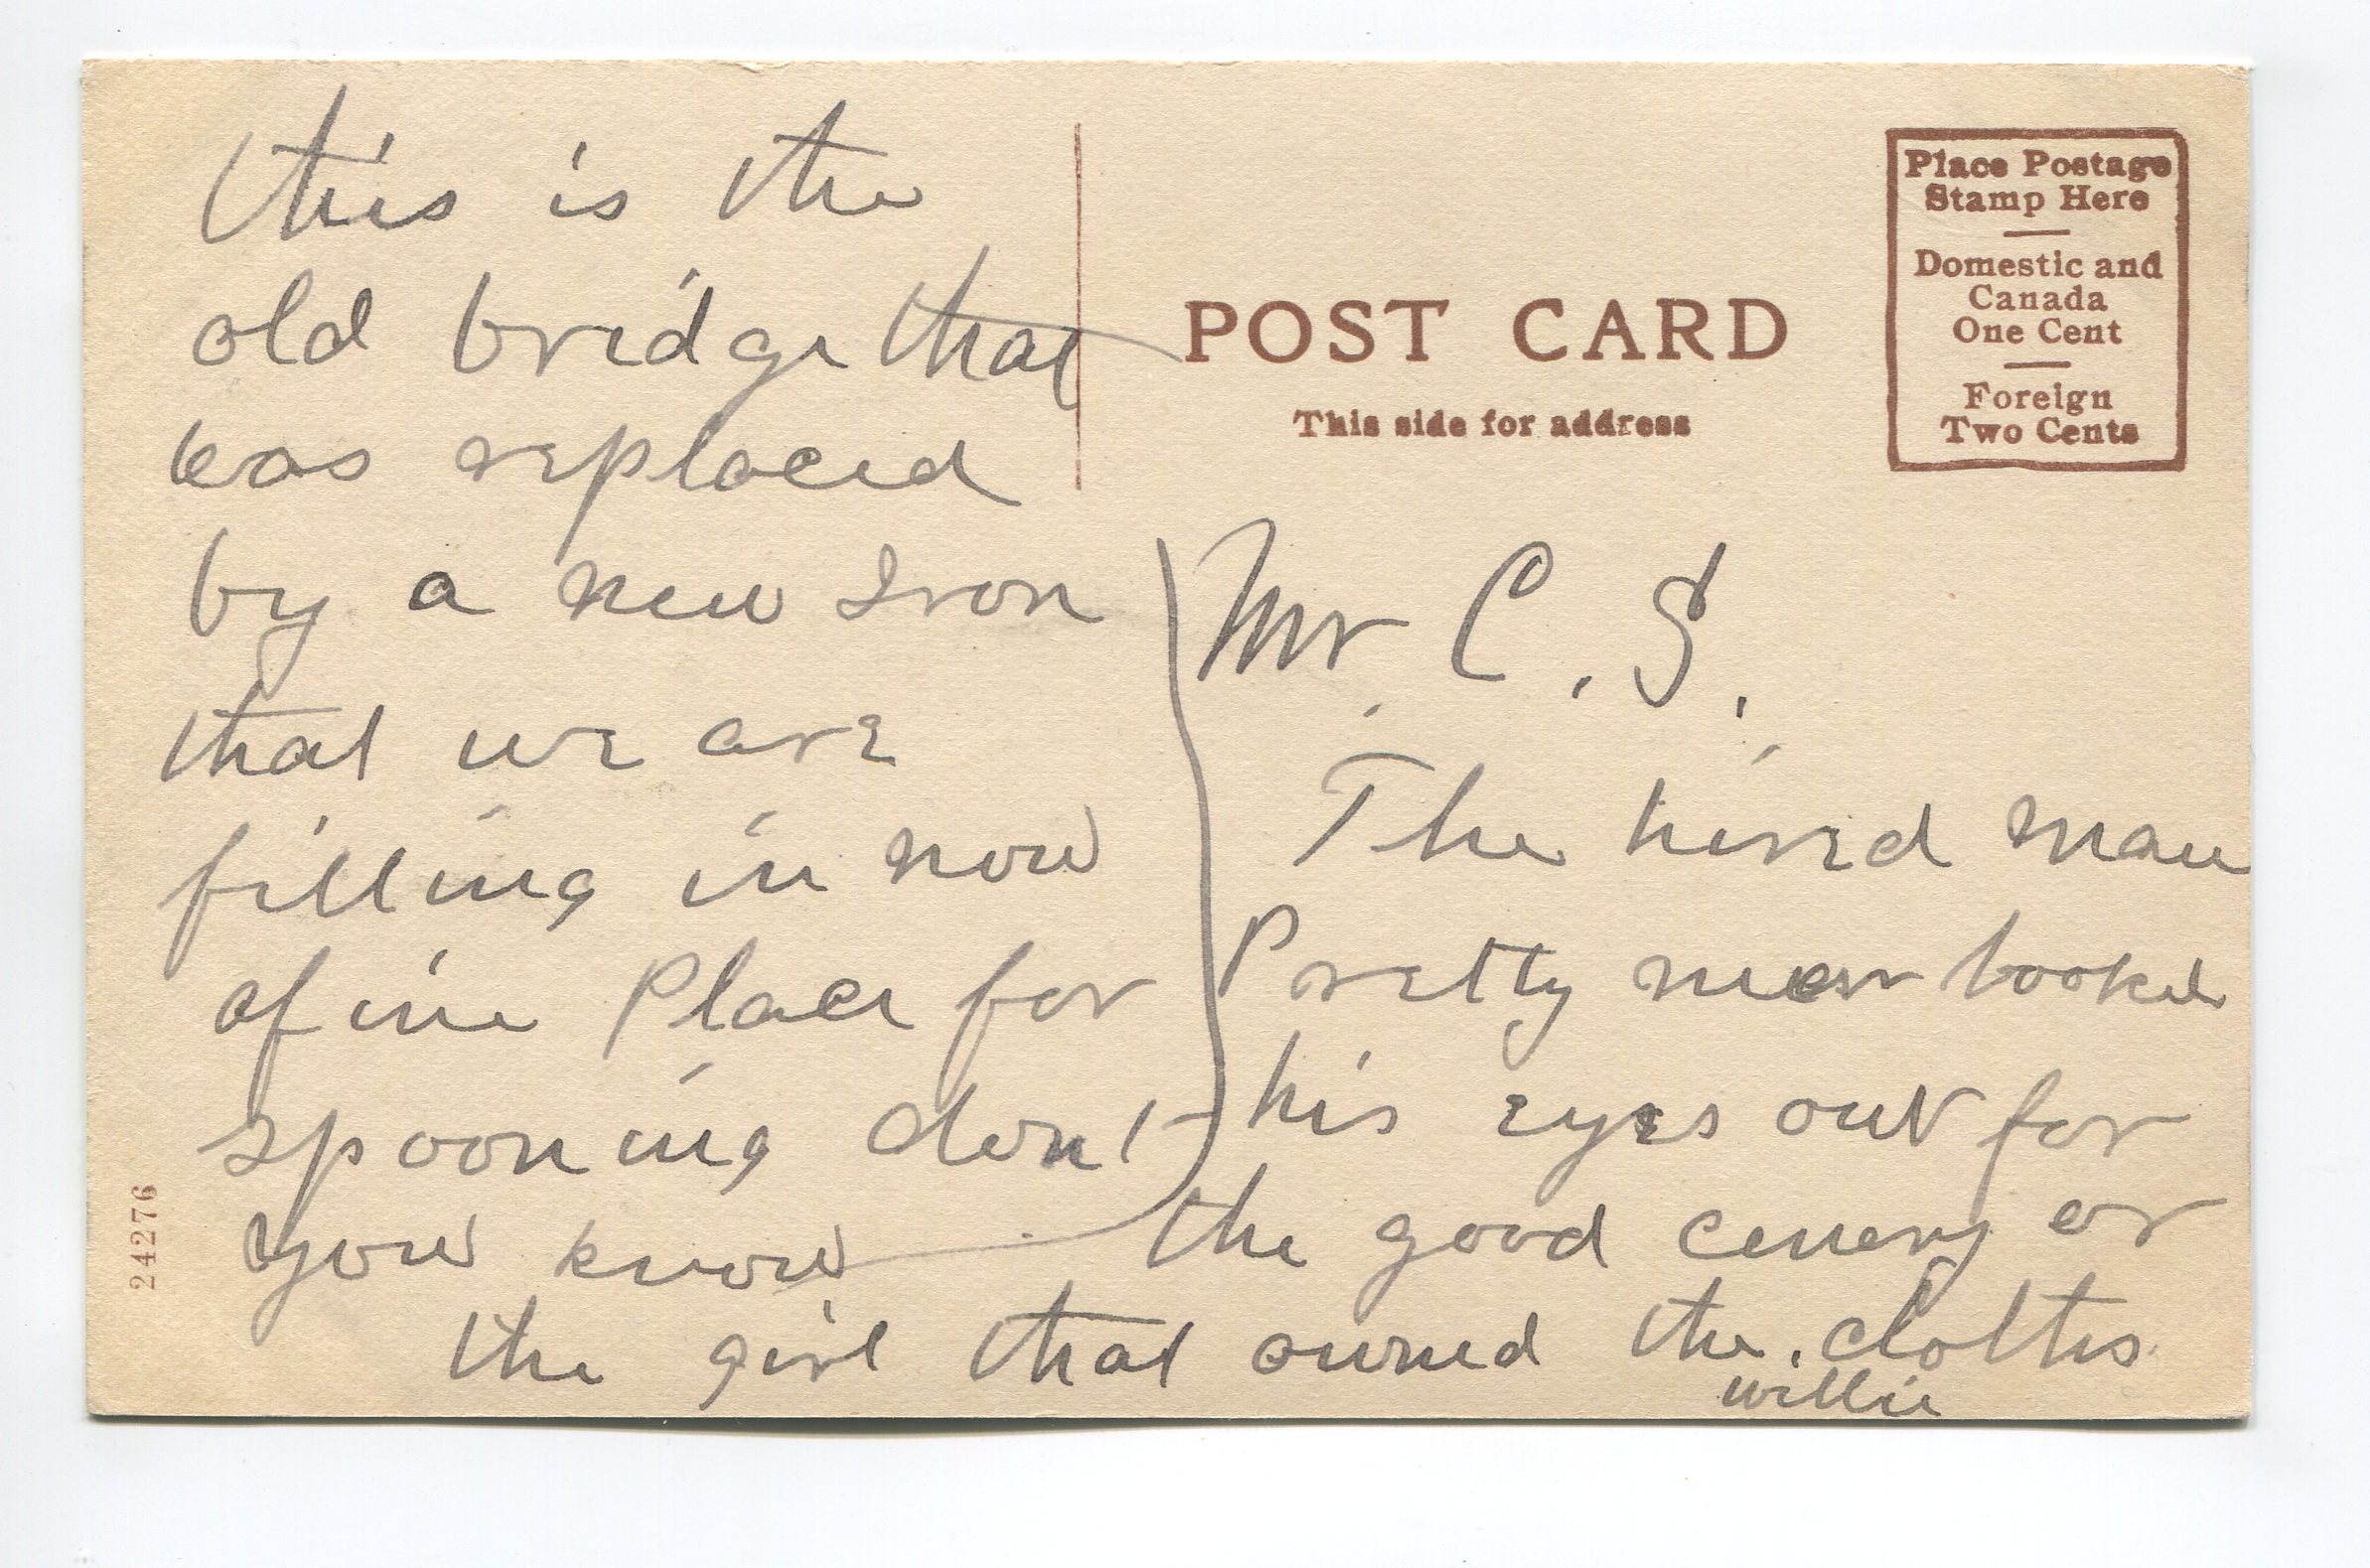 this is the
old bridge that
was replaced
by a new Iron
that we are
filling in now
a fine Place for
spooning dont
you know
POST CARD
This side for address
Place Postage
Stamp Here
Domestic and
Canada
One Cent
Foreign
Two Cents
Mr. C. S.
The hired man
Pretty near looked
his eyes out for
the good cenery or
the girl that owned the clothes
willie
24276